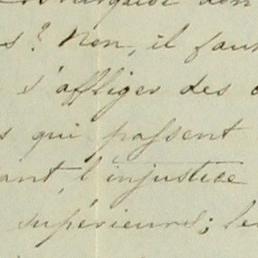 s? Non, il fau
s'affliger des
s qui passent
ant, l'injustice
supérieurs; le